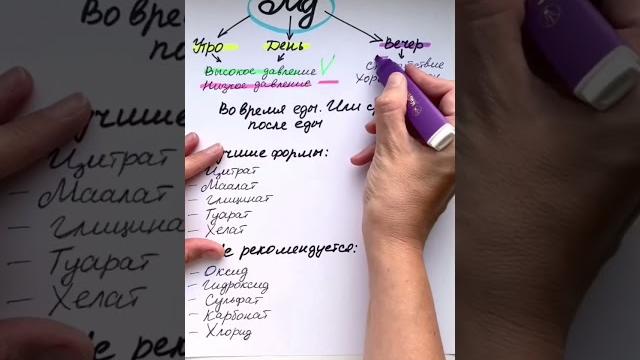 Mg
Утро День Вечер
Высокое давление
Низкое давление
Во время еды. Или
после еды
Лучшие формы:
- Цитрат
- Маалат
- Глицинат
- Туарат
- Хелат
Не рекомендуется:
- Оксид
- Гидроксид
- Сульфат
- Карбонат
- Хлорид